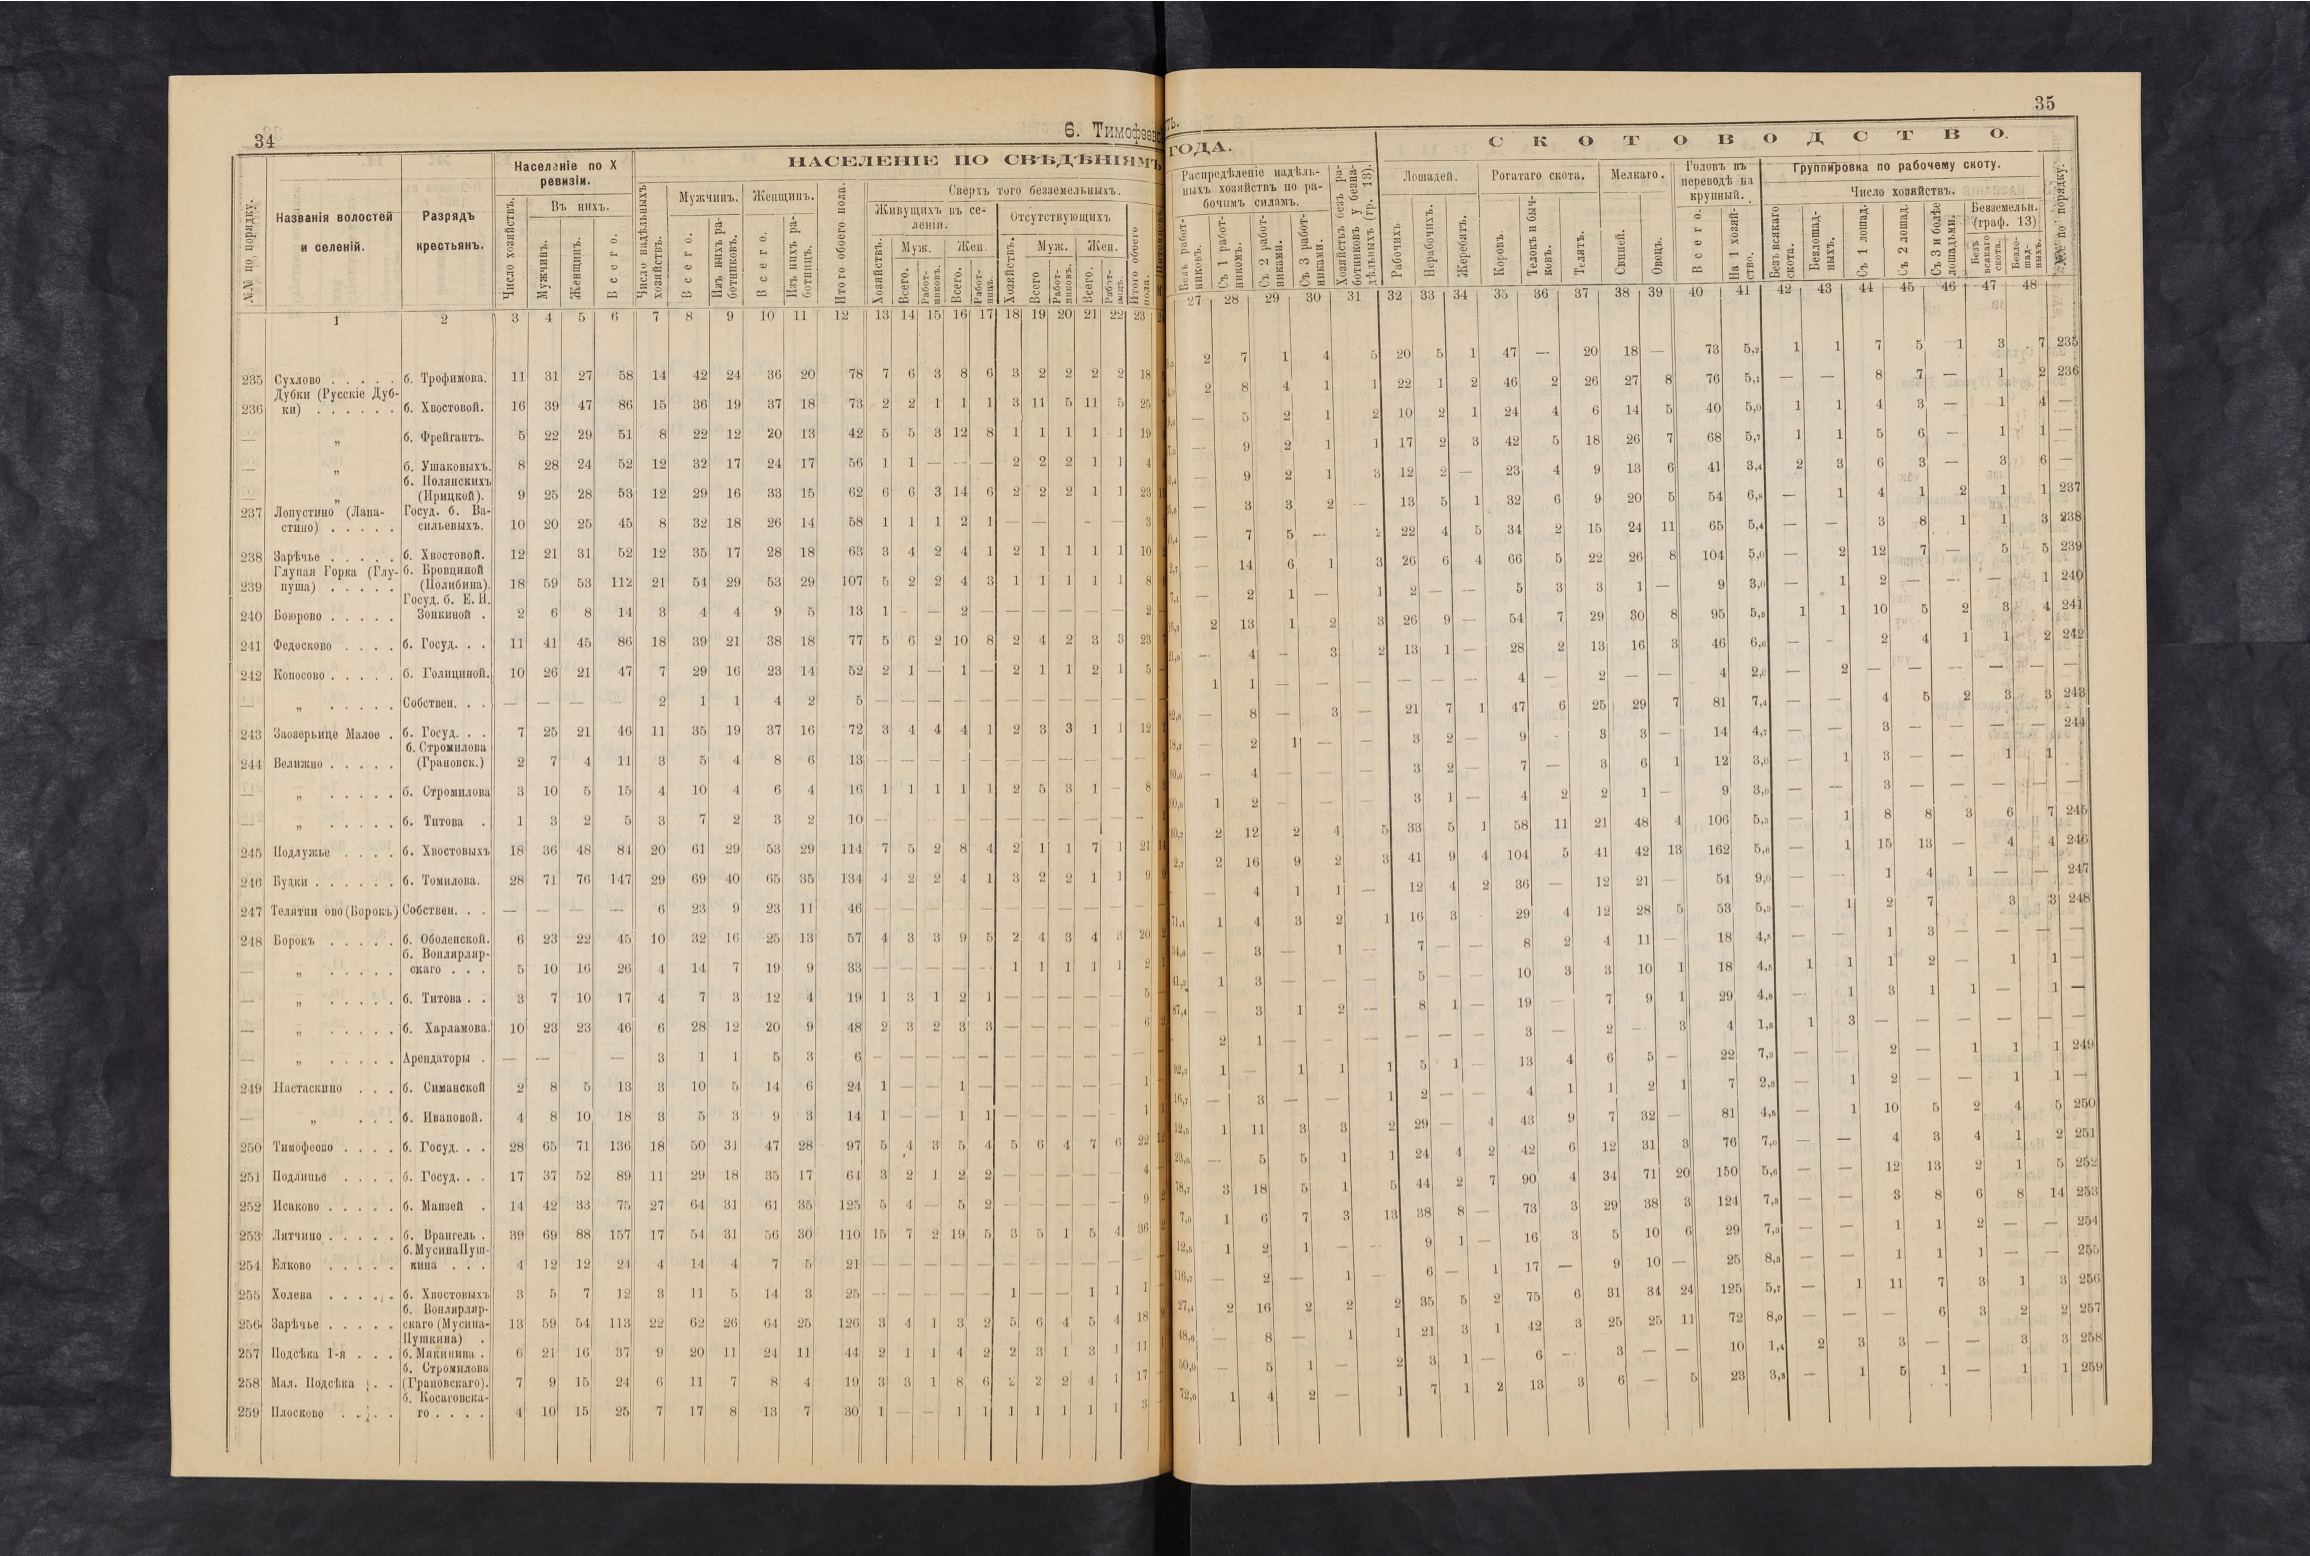 34
6. Тимофеевс
№№ по порядку.
Названія волостей и селеній.
Разрядъ крестьянъ.
Населеніе по X ревизіи.
Число хозяйствъ.
Въ нихъ.
Мужчинъ.
Женщинъ.
Всего.
НАСЕЛЕНІЕ ПО СВѢДѢНІЯМЪ
Число надѣльныхъ хозяйствъ.
Мужчинъ.
Всего.
Изъ нихъ работниковъ.
Женщинъ.
Всего.
Изъ нихъ работницъ.
Итого обоего пола.
Сверхъ того безземельныхъ.
Живущихъ въ селеніи.
Хозяйствъ.
Муж.
Всего.
Работниковъ.
Жен.
Всего.
Работницъ.
Отсутствующихъ
Хозяйствъ.
Муж.
Всего
Работниковъ.
Жен.
Всего.
Работницъ.
Итого обоего пола.
1 2 3 4 5 6 7 8 9 10 11 12 13 14 15 16 17 18 19 20 21 22 23
235 Сухлово . . . . . б. Трофимова. 11 31 27 58 14 42 24 36 20 78 7 6 3 8 6 3 2 2 2 2 18
Дубки (Русскіе Дуб-
236 ки) . . . . . . б. Хвостовой. 16 39 47 86 15 36 19 37 18 73 2 2 1 1 1 3 11 5 11 5 25
— „ б. Фрейгантъ. 5 22 29 51 8 22 12 20 13 42 5 5 3 12 8 1 1 1 1 1 19
— „ б. Ушаковыхъ. 8 28 24 52 12 32 17 24 17 56 1 1 — — — 2 2 2 1 1 4
б. Полянскихъ
— „ (Ирицкой). 9 25 28 53 12 29 16 33 15 62 6 6 3 14 6 2 2 2 1 1 23
237 Лопустино (Лапа- Госуд. б. Ва-
стино) . . . . . сильевыхъ. 10 20 25 45 8 32 18 26 14 58 1 1 1 2 1 — — — — — 3
238 Зарѣчье . . . . . б. Хвостовой. 12 21 31 52 12 35 17 28 18 63 3 4 2 4 1 2 1 1 1 1 10
Глупая Горка (Глу- б. Бровциной
239 пуша) . . . . . (Полибина). 18 59 53 112 21 54 29 53 29 107 5 2 2 4 3 1 1 1 1 1 8
Госуд. б. Е. Н.
240 Боюрово . . . . . Зонкиной . 2 6 8 14 3 4 4 9 5 13 1 - — 2 — — — — — — 2
241 Федосково . . . . б. Госуд. . . 11 41 45 86 18 39 21 38 18 77 5 6 2 10 8 2 4 2 3 3 23
242 Коносово . . . . . б. Голициной. 10 26 21 47 7 29 16 23 14 52 2 1 — 1 — 2 1 1 2 1 5
„ . . . . . Собствен. . . — — — — 2 1 1 4 2 5 — — — — — — — — — — —
243 Заозерьице Малое . б. Госуд. . . 7 25 21 46 11 35 19 37 16 72 3 4 4 4 1 2 3 3 1 1 12
б. Стромилова
244 Велижно . . . . . (Грановск.) 2 7 4 11 3 5 4 8 6 13 — — — — — — — — — — —
— „ . . . . . б. Стромилова 3 10 5 15 4 10 4 6 4 16 1 1 1 1 1 2 5 3 1 — 8
— „ . . . . . б. Титова . 1 3 2 5 3 7 2 3 2 10 — — — — — — — — — — —
245 Подлужье . . . . б. Хвостовыхъ 18 36 48 84 20 61 29 53 29 114 7 5 2 8 4 2 1 1 7 1 21
246 Будки . . . . . . б. Томилова. 28 71 76 147 29 69 40 65 35 134 4 2 2 4 1 3 2 2 1 1 9
247 Телятни ово (Борокъ) Собствен. . . — — — — 6 23 9 23 11 46 — — — — — — — — — — —
248 Борокъ . . . . . б. Оболенской. 6 23 22 45 10 32 16 25 13 57 4 3 3 9 5 2 4 3 4 3 20
б. Вонлярляр-
— „ . . . . . скаго . . . 5 10 16 26 4 14 7 19 9 33 — — — — — 1 1 1 1 1 2
— „ . . . . . б. Титова . . 3 7 10 17 4 7 3 12 4 19 1 3 1 2 1 — — — — — 5
— „ . . . . . б. Харламова. 10 23 23 46 6 28 12 20 9 48 2 3 2 3 3 — — — — — 6
— „ . . . . . Арендаторы . — — — 3 1 1 5 3 6 — — — — — — — — — — —
249 Пастаскино . . . б. Симанской 2 8 5 13 3 10 5 14 6 24 1 — — 1 — — — — — — 1
— „ . . . б. Ивановой. 4 8 10 18 3 5 3 9 3 14 1 — — 1 1 — — — — — 1
250 Тимофеево . . . . б. Госуд. . . 28 65 71 136 18 50 31 47 28 97 5 4 3 5 4 5 6 4 7 6 22
251 Подлипье . . . . б. Госуд. . . 17 37 52 89 11 29 18 35 17 64 3 2 1 2 2 — — — — — 4
252 Исаково . . . . . б. Манзей . 14 42 33 75 27 64 31 61 35 125 5 4 — 5 2 — — — — — 9
253 Лятчино . . . . . б. Врангель . 39 69 88 157 17 54 31 56 30 110 15 7 2 19 5 3 5 1 5 4 36
б. МусинаПуш-
254 Елково . . . . . кина . . . 4 12 12 24 4 14 4 7 5 21 — — — — — — — — — — —
255 Холева . . . . . б. Хвостовыхъ 3 5 7 12 3 11 5 14 3 25 — — — — — 1 — — 1 1 1
б. Вонлярляр-
256 Зарѣчье . . . . . скаго (Мусина- 13 59 54 113 22 62 26 64 25 126 3 4 1 3 2 5 6 4 5 4 18
Пушкина) .
257 Подсѣка 1-я . . . б. Мякинина . 6 21 16 37 9 20 11 24 11 44 2 1 1 4 2 2 3 1 3 1 11
б. Стромилова
258 Мал. Подсѣка . . (Грановскаго). 7 9 15 24 6 11 7 8 4 19 3 3 1 8 6 2 2 2 4 1 17
б. Косаговска-
259 Плосково . . . . го . . . . 4 10 15 25 7 17 8 13 7 30 1 — — 1 1 1 1 1 1 1 3
35
ГОДА.
СКОТОВОДСТВО.
Распредѣленіе надѣльныхъ хозяйствъ по рабочимъ силамъ.
Безъ работниковъ.
Съ 1 работникомъ.
Съ 2 работниками.
Съ 3 работниками.
Хозяйствъ безъ работниковъ у безнадѣльныхъ (гр. 13).
Лошадей.
Рабочихъ
Нерабочихъ.
Жеребятъ.
Рогатаго скота.
Коровъ.
Телокъ и бычковъ.
Телятъ.
Мелкаго.
Свиней.
Овецъ.
Головъ въ переводѣ на крупный.
Всего.
На 1 хозяйство.
Группировка по рабочему скоту.
Число хозяйствъ.
Безъ всякаго скота.
Безлошадныхъ.
Съ 1 лошад.
Съ 2 лошад.
Съ 3 и болѣе лошадьми.
Безземельн. (граф. 13)
Безъ всякаго скота.
Безлошадныхъ.
№№ по порядку.
27 28 29 30 31 32 33 34 35 36 37 38 39 40 41 42 43 44 45 46 47 48
2 7 1 4 5 20 5 1 47 — 20 18 — 73 5,2 1 1 7 5 1 3 7 235
2 8 4 1 1 22 1 2 46 2 26 27 8 76 5,1 — — 8 7 — 1 2 236
— 5 2 1 2 10 2 1 24 4 6 14 5 40 5,0 1 1 4 3 — 1 4 —
— 9 2 1 1 17 2 3 42 5 18 26 7 68 5,7 1 1 5 6 — 1 1 —
— 9 2 1 3 12 2 — 23 4 9 13 6 41 3,4 2 3 6 3 — 3 6 —
— 3 3 2 — 13 5 1 32 6 9 20 5 54 6,8 — 1 4 1 2 1 1 237
— 7 5 — 2 22 4 5 34 2 15 24 11 65 5,4 — — 3 8 1 1 3 238
— 14 6 1 3 26 6 4 66 5 22 26 8 104 5,0 — 2 12 7 — 5 5 239
— 2 1 — 1 2 — — 5 3 3 1 — 9 3,0 — 1 2 — — — 1 240
2 13 1 2 3 26 9 — 54 7 29 30 8 95 5,3 1 1 10 5 2 3 4 241
— 4 — 3 2 13 1 — 28 2 13 16 3 46 6,6 — - 2 4 1 1 2 242
1 1 — — — — — — 4 — 2 — — 4 2,0 — 2 — — — — — —
— 8 — 3 — 21 7 1 47 6 25 29 7 81 7,4 — — 4 5 2 3 3 243
— 2 1 — — 3 2 — 9 - 3 3 — 14 4,7 — — 3 — — — — 244
— 4 — — — 3 2 — 7 — 3 6 1 12 3,0 — 1 3 — — 1 1
1 2 — — — 3 1 — 4 2 2 1 — 9 3,0 — — 3 — — — — —
2 12 2 4 5 33 5 1 58 11 21 48 4 106 5,3 — 1 8 8 3 6 7 245
2 16 9 2 3 41 9 4 104 5 41 42 13 162 5,6 — 1 15 13 — 4 4 246
- 4 1 1 — 12 4 2 36 — 12 21 — 54 9,0 — — 1 4 1 — — 247
1 4 3 2 1 16 3 29 4 12 28 5 53 5,3 — 1 2 7 3 3 248
— 3 — 1 — 7 — — 8 2 4 11 — 18 4,5 — — 1 3 — — — —
1 3 — — — 5 — — 10 3 3 10 1 18 4,5 1 1 1 2 — 1 1 —
— 3 1 2 — 8 1 — 19 — 7 9 1 29 4,8 — 1 3 1 1 — 1 —
2 1 — — — — — — 3 — 2 - 3 4 1,3 1 3 — — — — — —
1 — 1 1 1 5 1 — 13 4 6 5 — 22 7,3 — — 2 — 1 1 1 249
— 3 — — 1 2 — — 4 1 1 2 1 7 2,3 — 1 2 — — 1 1 —
1 11 3 3 2 29 — 4 43 9 7 32 — 81 4,5 — 1 10 5 2 4 5 250
— 5 5 1 1 24 4 2 42 6 12 31 3 76 7,0 — — 4 3 4 1 2 251
3 18 5 1 5 44 2 7 90 4 34 71 20 150 5,6 — — 12 13 2 1 5 252
1 6 7 3 13 38 8 — 73 3 29 38 3 124 7,3 — — 3 8 6 8 14 253
1 2 1 — - 9 1 — 16 3 5 10 6 29 7,3 — — 1 1 2 — — 254
— 2 — 1 — 6 — 1 17 — 9 10 — 25 8,3 — — 1 1 1 — — 255
2 16 2 2 2 35 5 2 75 6 31 34 24 125 5,7 — 1 11 7 3 1 3 256
— 8 — 1 1 21 3 1 42 3 25 25 11 72 8,0 — — — 6 3 2 2 257
— 5 1 — 2 3 1 — 6 — 3 — — 10 1,4 2 3 3 — — 3 3 258
1 4 2 — 1 7 1 2 13 3 6 — 5 23 3,3 — 1 5 1 — 1 1 259